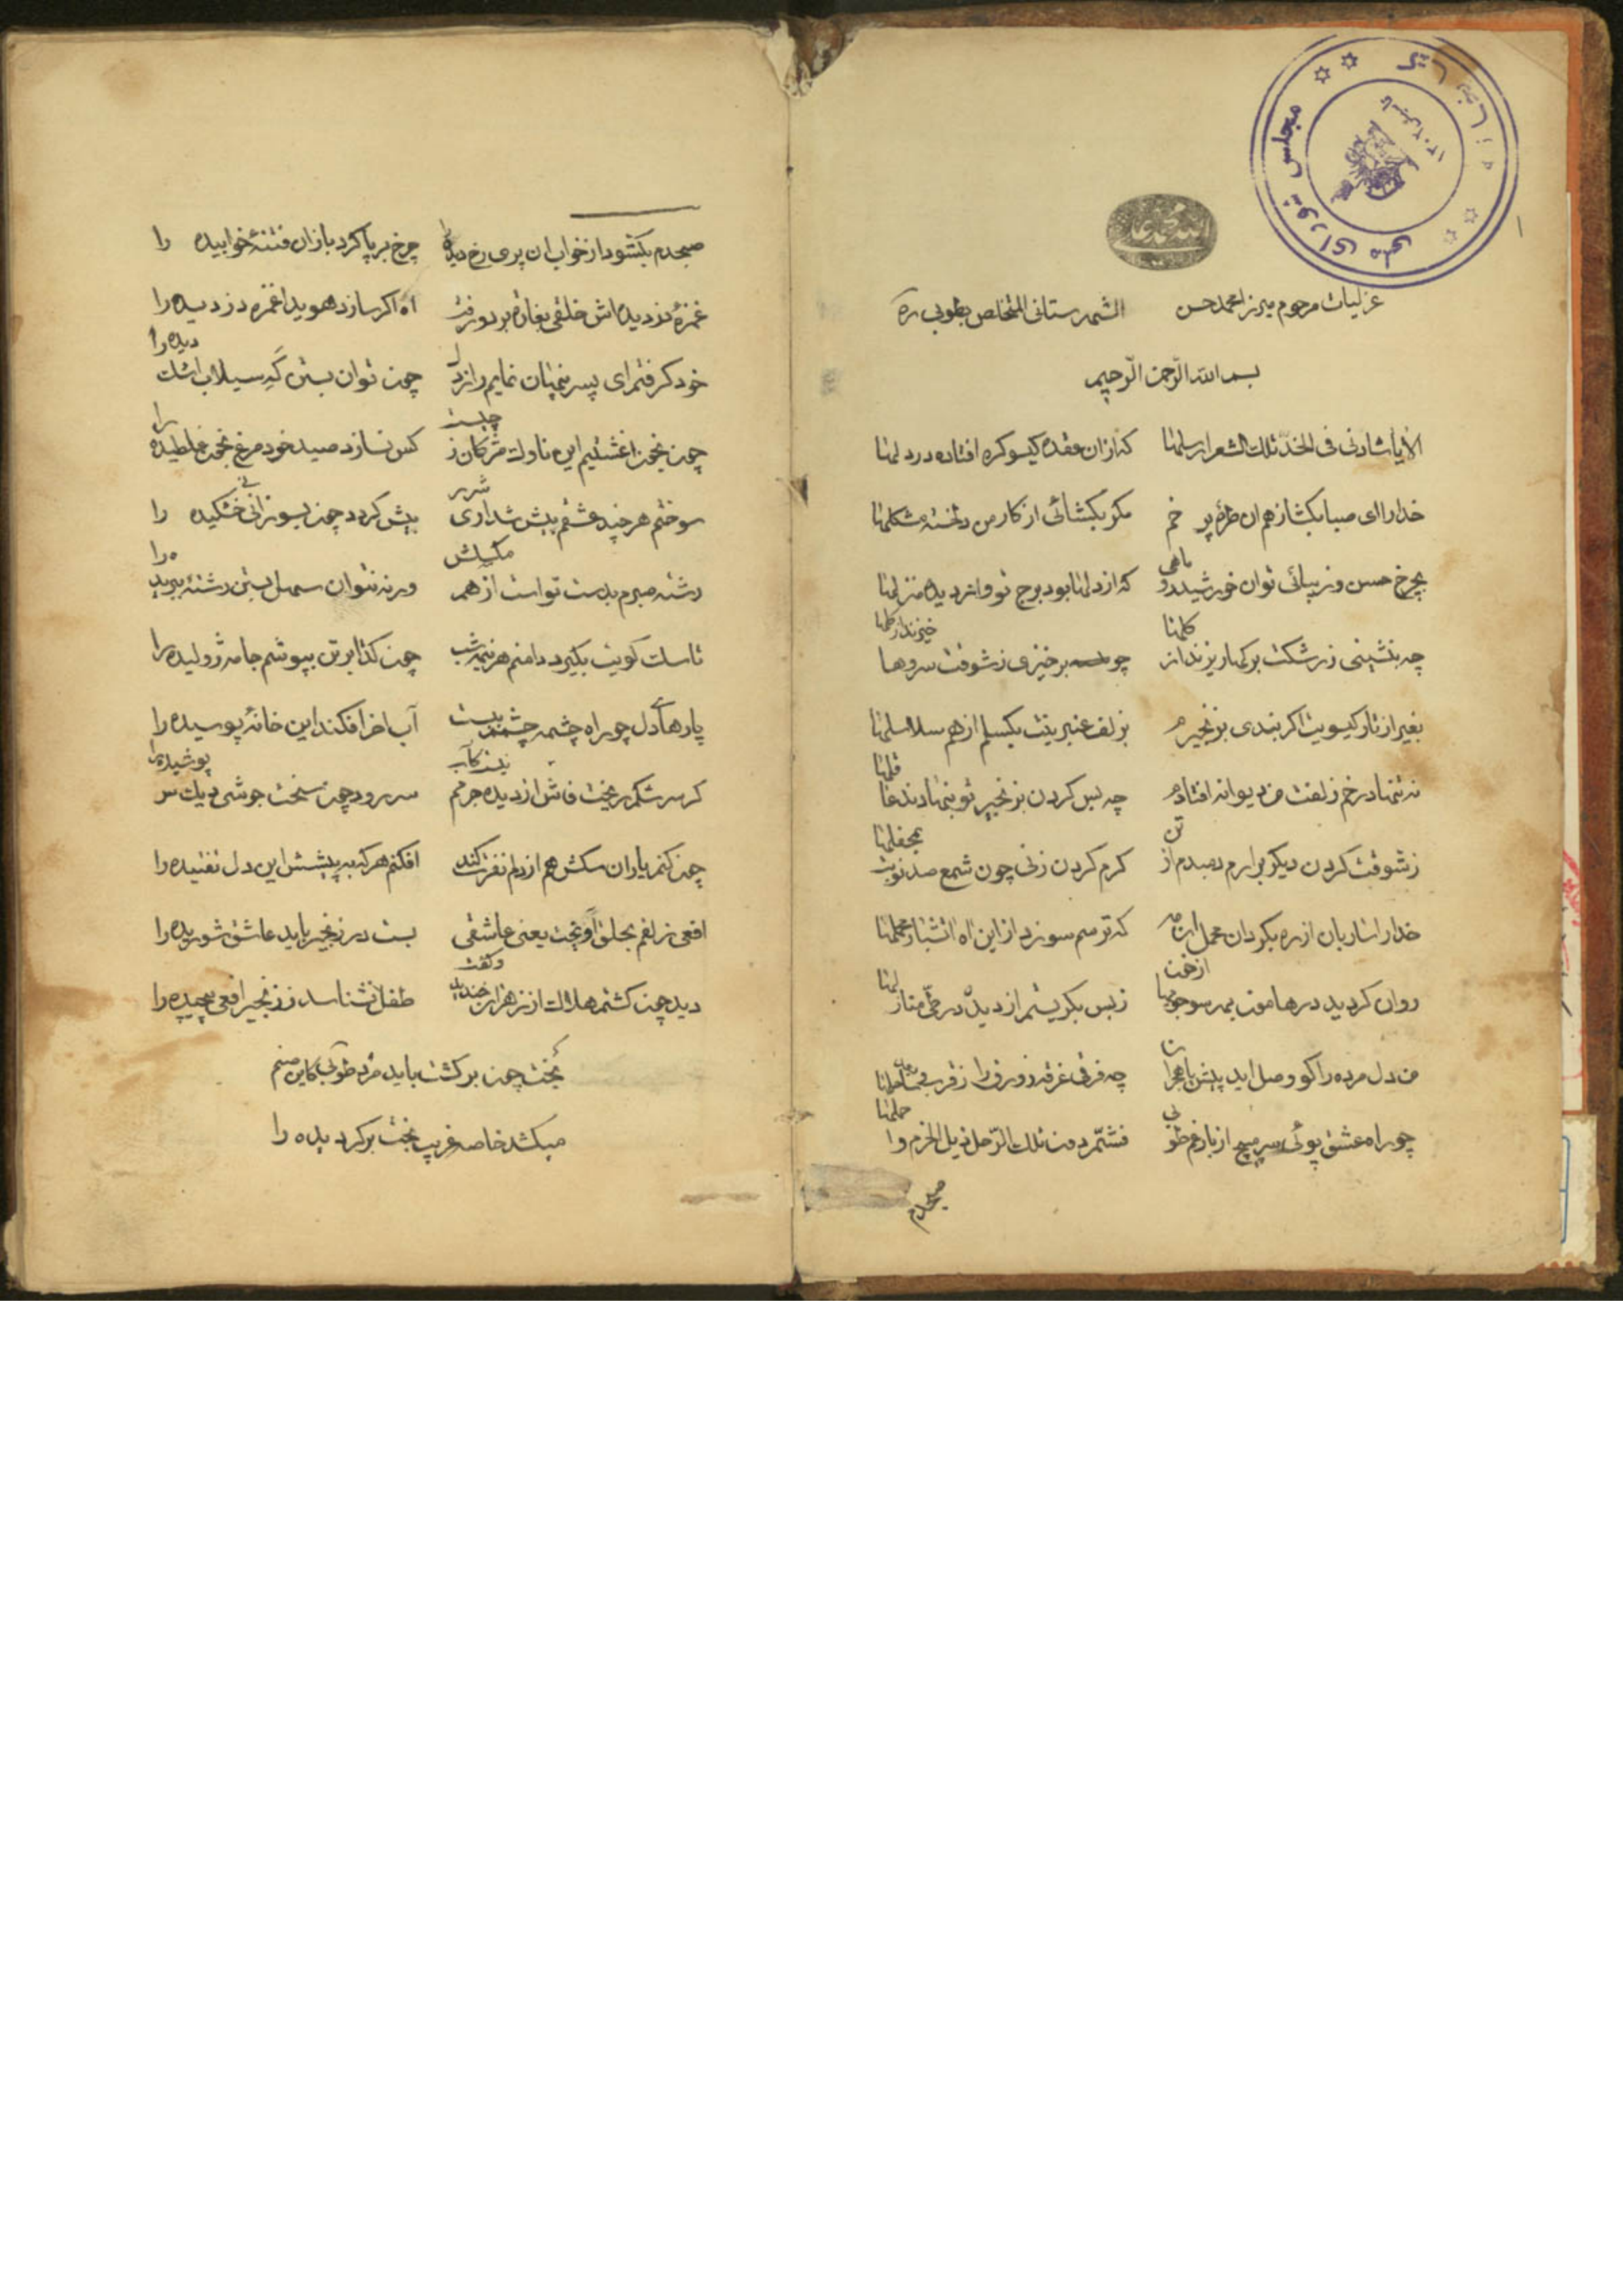 غزلیات مرحوم میرزا محمد حسن الشهرستانی المتخلص بطوبی ره
بسم الله الرحمن الرحیم
که ازان عقده کیسو کره افتاده در دلها
خدارا ای صبا بکشا ز هم ان طره پر خم مکر بکشائی از کار من دلخسته مشکلها
بچرخ حسن و زیبائی توان خورشید و ماهی که از دلها بود برج تو وانر دیده منزلها
چه بنشینی ز رشکت بر کهاریزند از کلها چو برخیزی ز شوقت سروها خیزند از کلها
بغیر از تار کیسویت اکر بندی بزنجیرم بزلف عنبرینت بکسلم از هم سلاسلها
نه تنها در خم زلفت من دیوانه افتادم چه بس کردن بزنجیر تو بنهادند عاقلها
ز شوقت کردن دیکر برارم دمبدم از تن کرم کردن زنی چون شمع صد نوبت بمحفلها
خدارا ساربان از ره بکردان محمل که ترسم سوزد از این اه اتشبار محملها
روان کردید در هامون بهر سو جویها از خون ز بس بکریستم از دیده در طی منازلها
من دل مرده را کو وصل اید پیش یا هجران چه فرقی غرقه زورق را ز قرب
چو راه عشق پوئی سر مپیچ از بار غم طوبی فشمر دون تلک الرحل ذیل الخرم و احملها
صبحدم
صبحدم بکشود از خواب ان پری رخ دیده را چرخ بر پا کرد باز ان فتنهٔ خوابیده را
غمزهٔ دزدیده اش خلقی بغارت برد و رفت اه اکر سازد هویدا غمزه دزدیده را
خود کرفتم ای پسر پنهان نمایم راز دل چون توان بستن که سیلاب اشک دیده را
چون بخون اغشتیم این ناوک مژکان ز چیست کس نسازد صید خود مرغ بخون غلطیده را
سوختم هر چند عشقم بیش شد اری شرر بیش کردد چون بسوزانی نی خشکیده را
رشته صبرم بدست تواست از هم مکسلش ورنه نتوان سهل بستن رشته ببریده را
تا سک کویت بکیرد دامنم هر نیمه شب چون کدا بر تن بپوشم جامه ژولیده را
پارهای دل چو راه چشمه چشمم ببست آب اخر افکند این خانهٔ پوسیده را
کر سرشکم ریخت فاش از دیده جرمم نیست کاب سر رود چون سخت جوشی دیک سر پوشیده را
چون کنم یاران سکش هم از دلم نفرت کند افکنم هر که به پیشش این دل تفتیده را
افعی زلفم بحلق آویخت یعنی عاشقی بست در زنجیر باید عاشق شوریده را
دید چون کشتم هلاک از زهر ان خندید و کفت طفل نشناسد ز زنجیر افعی پیچیده را
بخت چون برکشت باید مرد طوبی کاین صنم
میکشد خاصه غریب بخت برکردیده را
مجلس شورای ملی